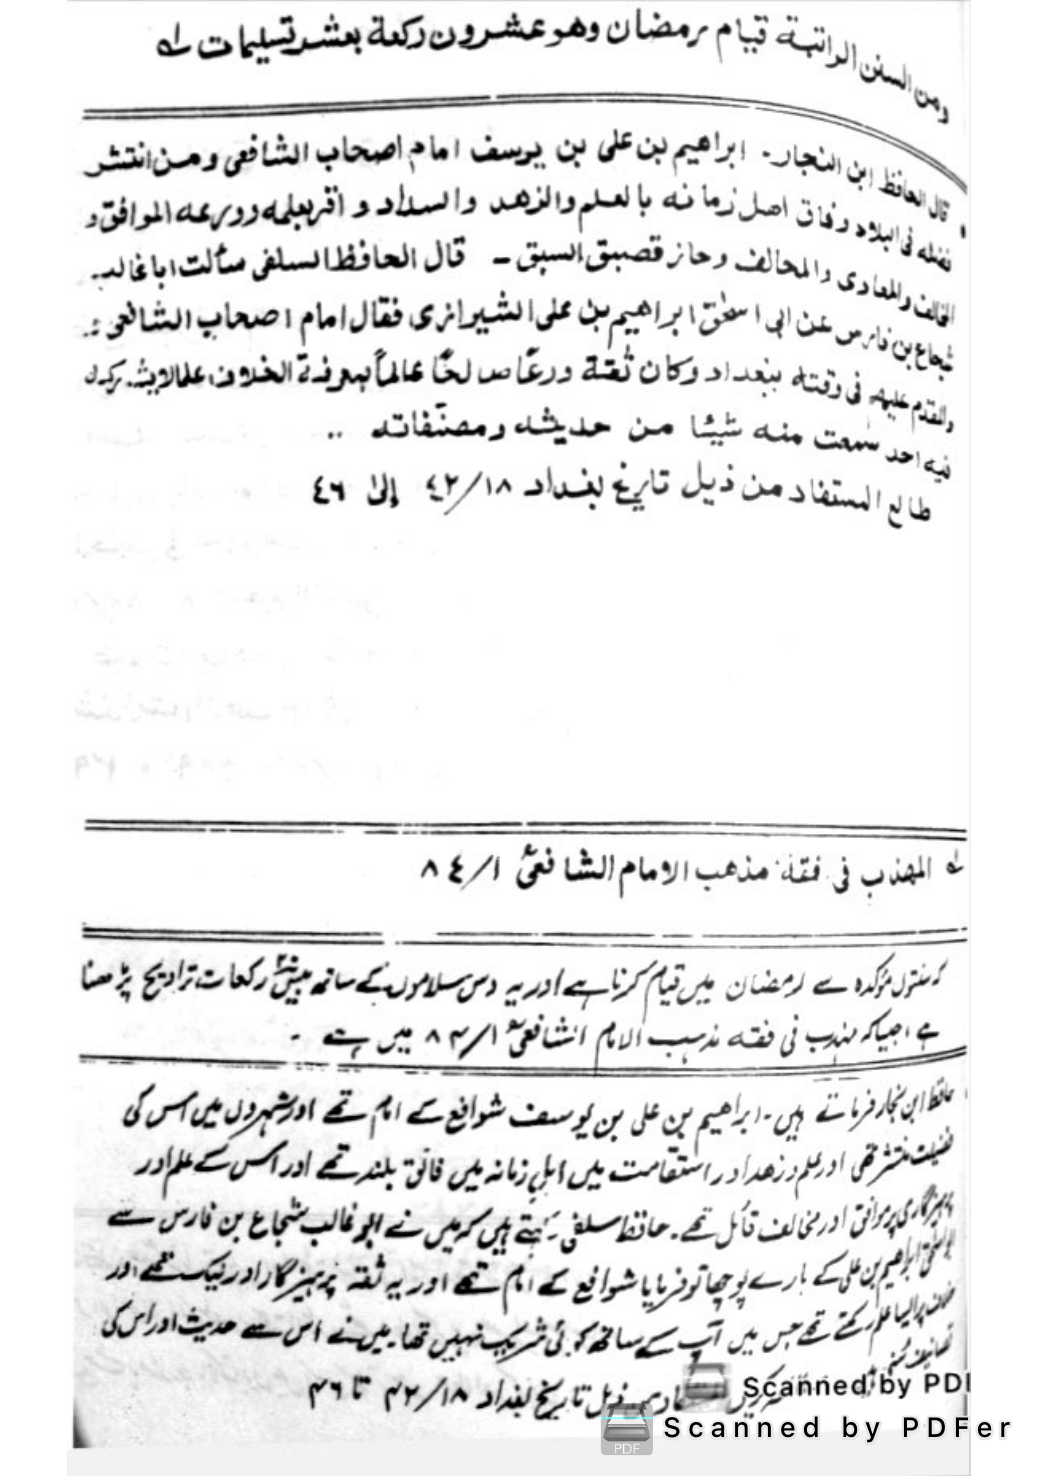 ومن السنن الراتبة قيام رمضان وهو عشرون ركعة بعشر تسليمات لہ
قال الحافظ ابن النجار۔ ابراهيم بن على بن يوسف امام اصحاب الشافعى ومن انتشر
فضله فى البلاد وفاق اهل زمانه بالعلم والزهد والسداد و اقر بعلمه وورعه الموافق و
المخالف والمعادى والمحالف وحاز قصبق السبق ـ قال الحافظ السلفى سألت اباغالب
شجاع بن فارس عن ابى اسحٰق ابراهيم بن على الشيرازى فقال امام اصحاب الشافعى
والمقدم عليهم فى وقته ببغداد وكان ثقة ورعًا صالحًا عالمًا بمعرفة الخلاف علما لايشركه
فيه احد سمعت منه شيئا من حديثه ومصنّفاته ..
طالع المستفاد من ذيل تاريخ بغداد ١٨/٤٢ إلىٰ ٤٦
لہ المهذب فى فقه مذهب الامام الشافعىؒ ١/٨٤
کر سنتوں مؤکدہ سے رمضان میں قیام کرنا ہے اور یہ دس سلاموں کے ساتھ بیس رکعات تراویح پڑھنا
ہے جیسا کہ مہذب فی فقہ مذہب الامام الشافعیؒ ۱/۸۴ میں ہے ۔
حافظ ابن نجار فرماتے ہیں۔ ابراھیم بن علی بن یوسف شوافع کے امام تھے اور شہروں میں اس کی
فضیلت منتشر تھی اور علم و زھد اور استقامت میں اہل زمانہ میں فائق بلند تھے اور اس کے علم اور
پرہیزگاری پر موافق اور مخالف قائل تھے۔ حافظ سلفی کہتے ہیں کہ میں نے ابو غالب شجاع بن فارس سے
ابو اسحٰق ابراھیم بن علی کے بارے پوچھا تو فرمایا شوافع کے امام تھے اور یہ ثقہ پرہیز گار اور نیک تھے اور
پر ایسا علم رکھتے تھے جس میں آپ کے ساتھ کوئی شریک نہیں تھا۔ میں نے اس سے حدیث اور اس کی
تصانیف سُنی
کریں ذیل تاریخ بغداد ۱۸/۴۲ تا ۴۶
Scanned by PDF
Scanned by PDFer